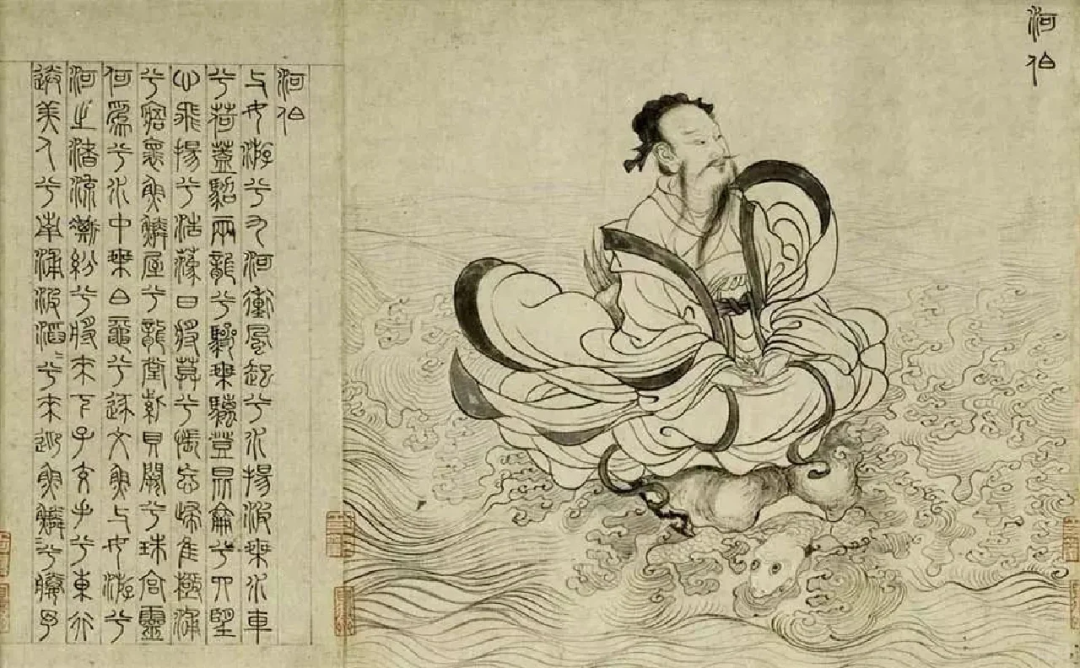 河伯
河伯
与女游兮九河衝風起兮水揚波乘水車
兮荷蓋駕兩龍兮驂乘登昆侖兮四望
心飛揚兮浩蕩日將暮兮悵忘歸惟極浦
兮寤褱魚鱗屋兮龍堂紫貝闕兮珠宮靈
何爲兮水中乘白黿兮逐文魚与女游兮
河之渚流澌紛兮將來下子交手兮東行
送美人兮南浦波滔〻兮來迎魚鱗〻兮媵予